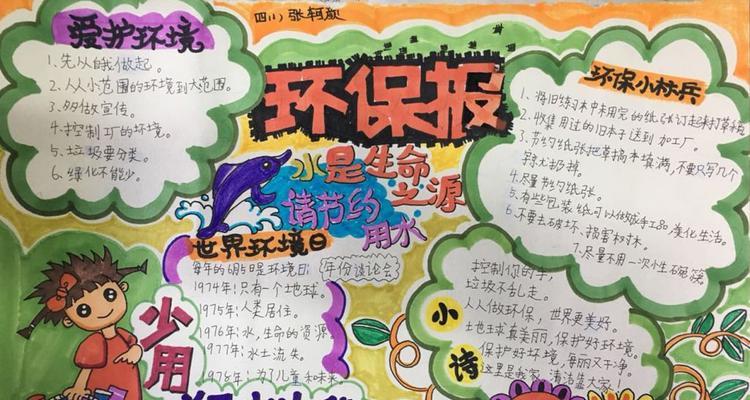 四(1)张轲颜
爱护环境
1、先从自我做起。
2、从小范围的环境到大范围。
3、多做宣传。
4、控制工厂的环境。
5、垃圾要分类。
6、绿化不能少。
环保报
水是生命
之源
请节约
用水
环保小标兵
1、将旧练习本中未用完的纸张订起来打草稿
2、收集用过的旧本子送到加工厂。
3、节约纸张把草稿本填满,不要只写几个
就扔掉。
4、尽量节约纸张。
5、有些包装纸可以做成手工品,美化生活。
6、不要去破坏、损害树木。
7、尽量不用一次性碗筷
世界环境日
每年的6月5日是环境日
1974年:只有一个地球。
1975年:人类居住。
1976年:水,生命的资源
1977年:水土流失。
1978年:为了儿童和未来
小诗
控制你的手,
垃圾不乱走。
人人做环保,世界更美好。
土地球真美丽,保护好环境。
保护好环境,每丽又干净。
这里是我家,清洁靠大家!
少用